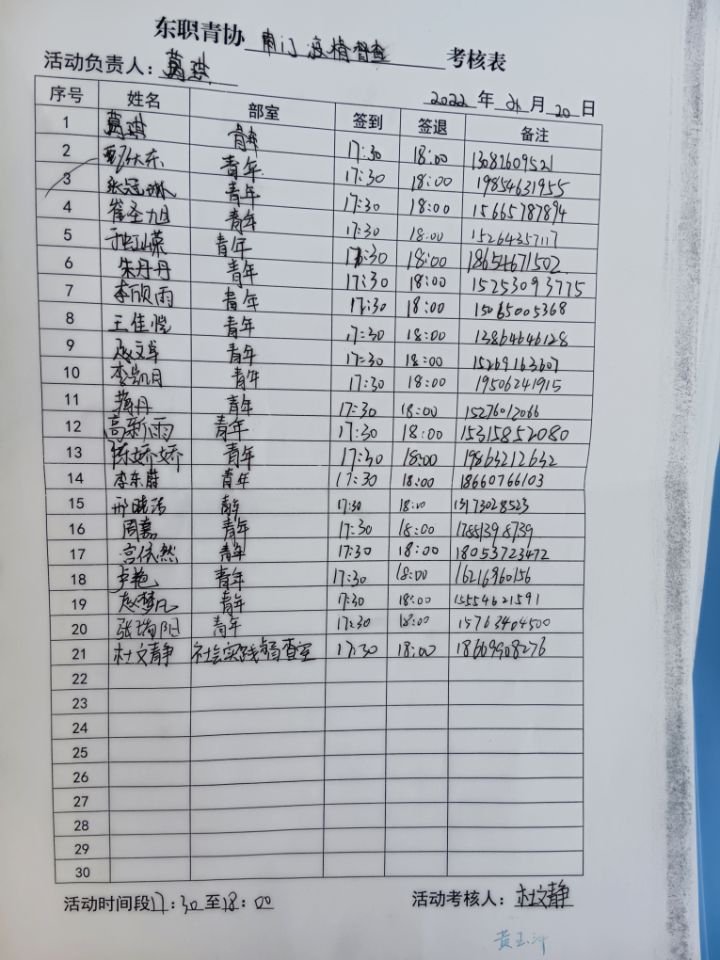 东职青协 南门疫情督查 考核表
活动负责人：葛琪
2022 年 月 20 日
序号 姓名 部室 签到 签退 备注
1 葛琪 青年 17:30 18:00 13082609521
2 青年 17:30 18:00 19854631955
3 张冠琳 青年 17:30 18:00 15665787894
4 崔圣旭 青年 17:30 18:00 15264357117
5 青年 17:30 18:00 18654671502
6 朱丹丹 青年 17:30 18:00 15253093775
7 李欣雨 青年 17:30 18:00 15065005368
8 王佳恺 青年 17:30 18:00 13864646128
9 赵文卓 青年 17:30 18:00 15269163607
10 李凯月 青年 17:30 18:00 19506241915
11 青年 17:30 18:00 15276012066
12 高新雨 青年 17:30 18:00 15315852080
13 陈娇娇 青年 17:30 18:00 19863212632
14 李东蔚 青年 17:30 18:00 18660766103
15 邢晓洁 青年 17:30 18:00
16 周嘉 青年 17:30 18:00
17 宫依然 青年 17:30 18:00 18053723472
18 卢艳 青年 17:30 18:00 16216960156
19 赵梦凡 青年 17:30 18:00 15554621591
20 张瑞阳 青年 17:30 18:00 15763404500
21 杜文静 社会实践督查室 17:30 18:00 18669908276
22
23
24
25
26
27
28
29
30
活动时间段17：30至18：00 活动考核人：杜文静